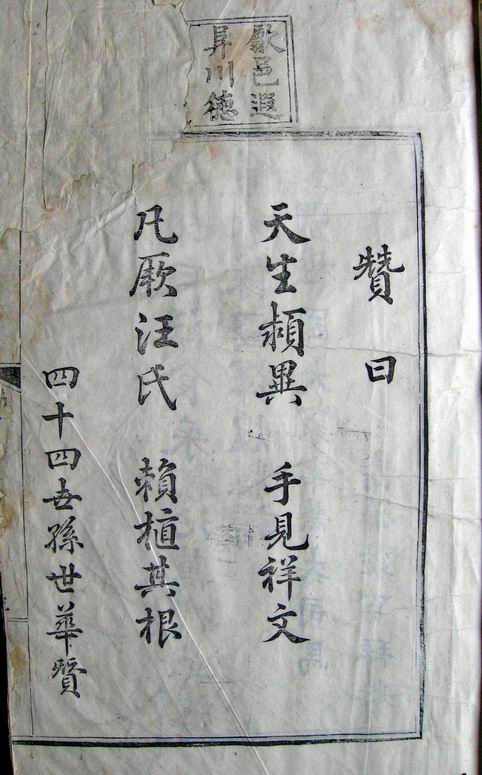 歙邑遐
川德
贊曰
天生頴異 手見祥文
凡厥汪氏 賴植其根
四十四世孫世華贊